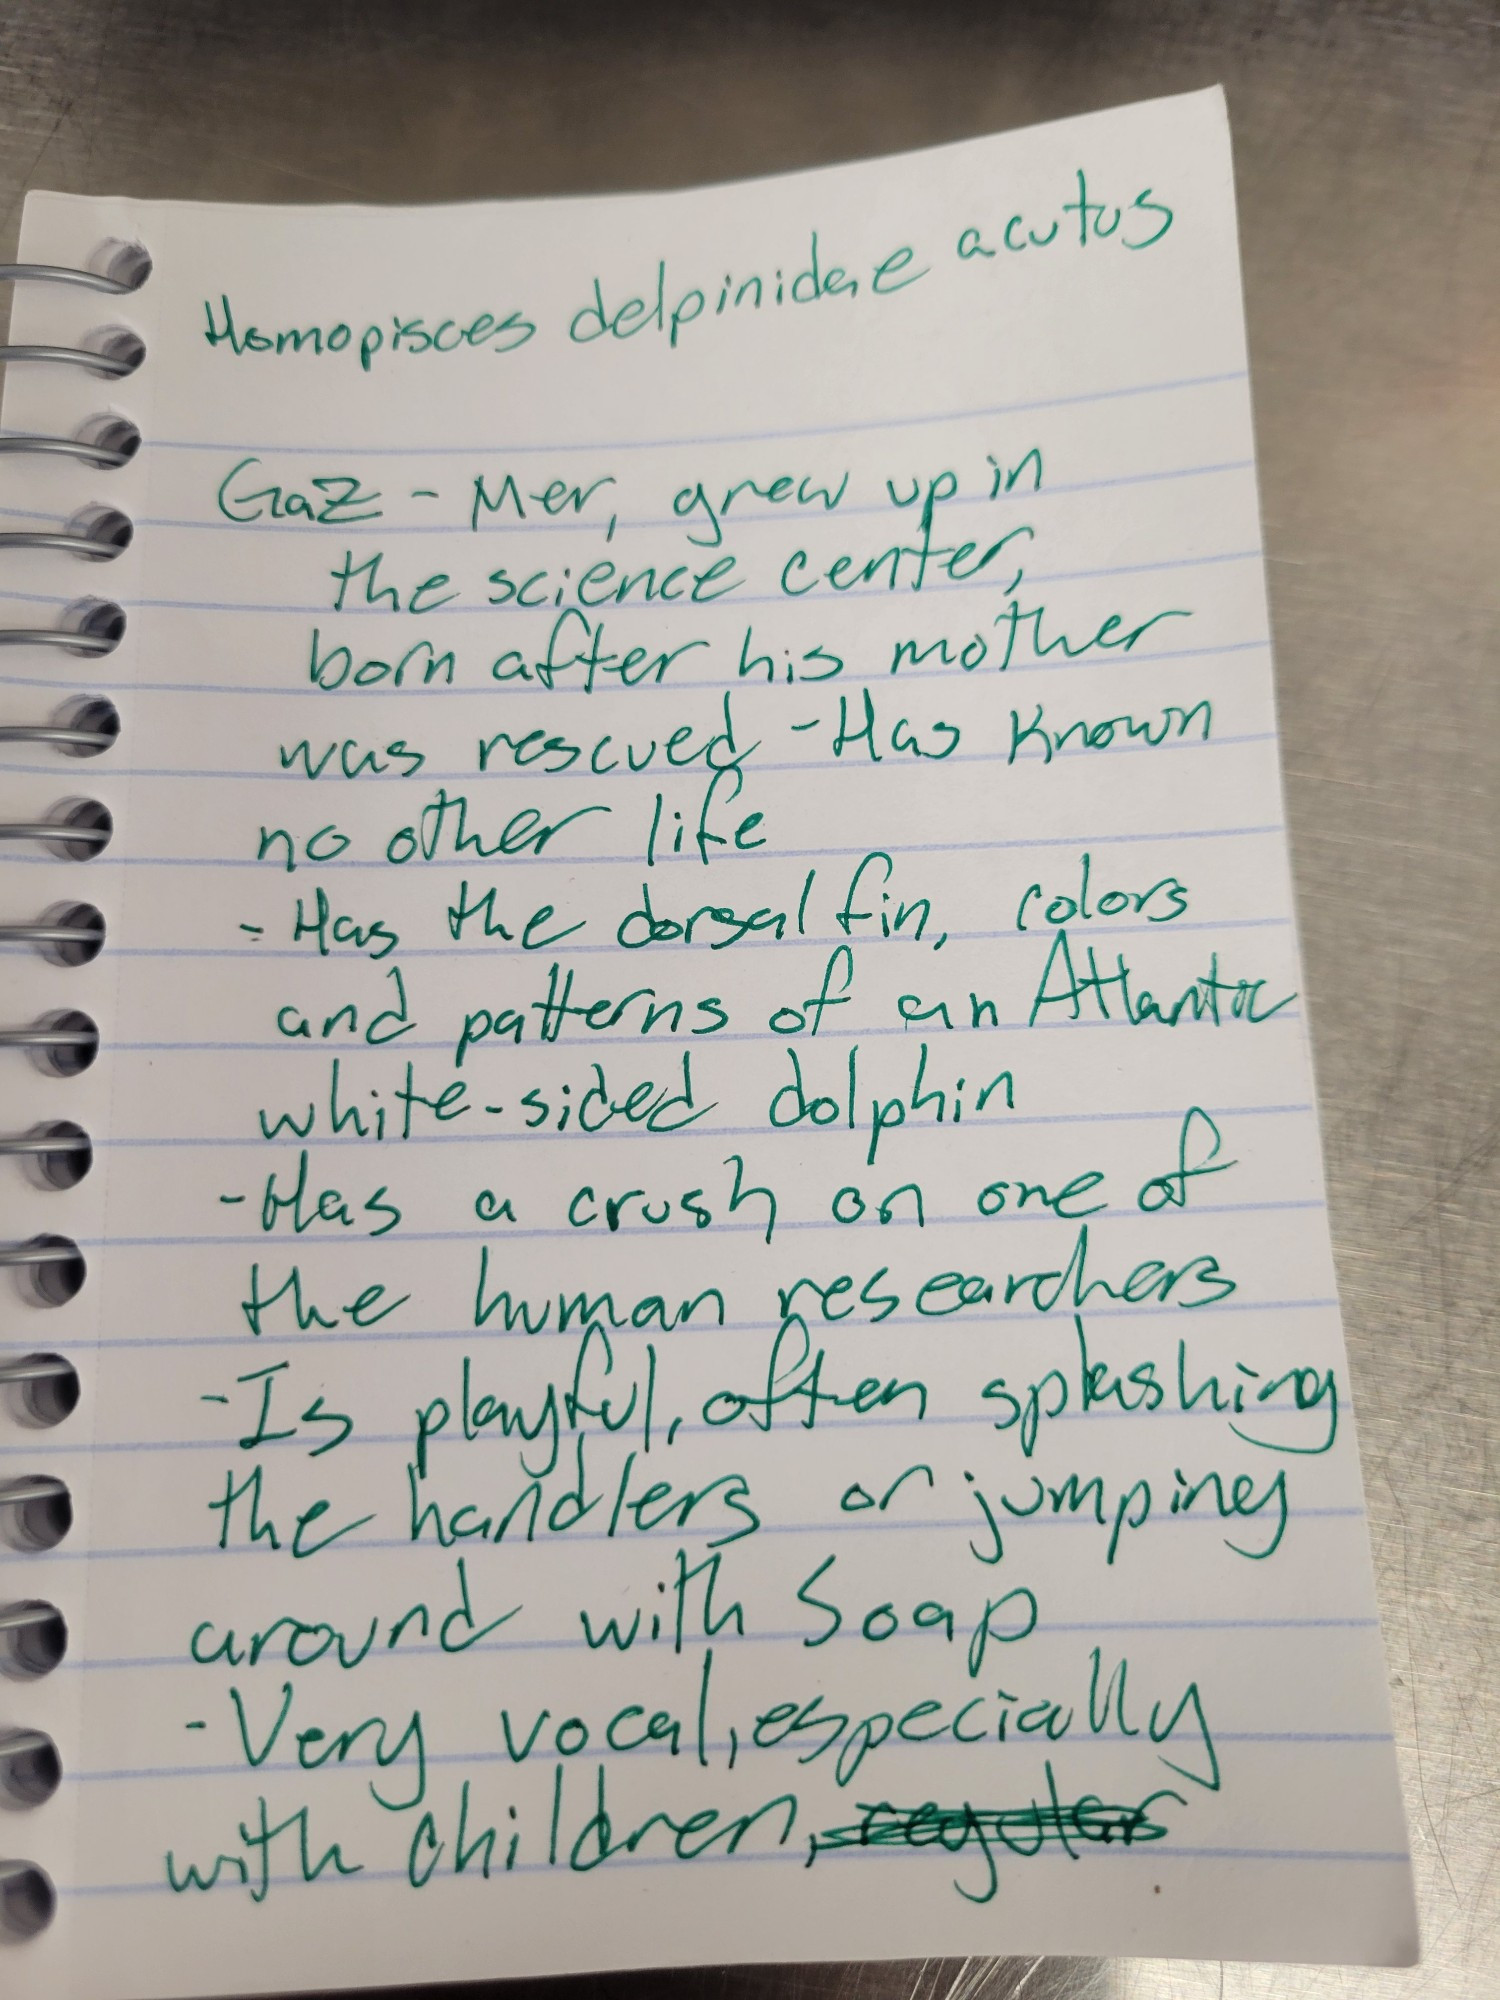 Homopisces delpinidae acutus
Gaz - Mer, grew up in
the science center,
born after his mother
was rescued - Has known
no other life
- Has the dorsal fin, colors
and patterns of an Atlantic
white-sided dolphin
- Has a crush on one of
the human researchers
- Is playful, often splashing
the handlers or jumping
around with Soap
- Very vocal, especially
with children,